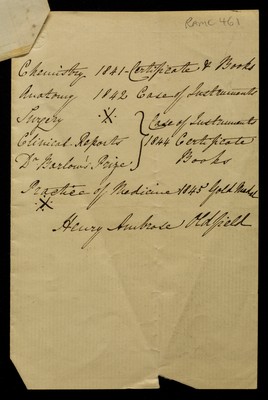 RAMC 461
Chemistry 1841 - Certificate & Books
Anatomy 1842 Case of Instruments
Surgery X Case of Instruments
Clinical Reports } 1844 Certificate
Dr Barlow's Prize Books
Practice of Medicine 1845 Gold Medal
X
Henry Ambrose Oldfield